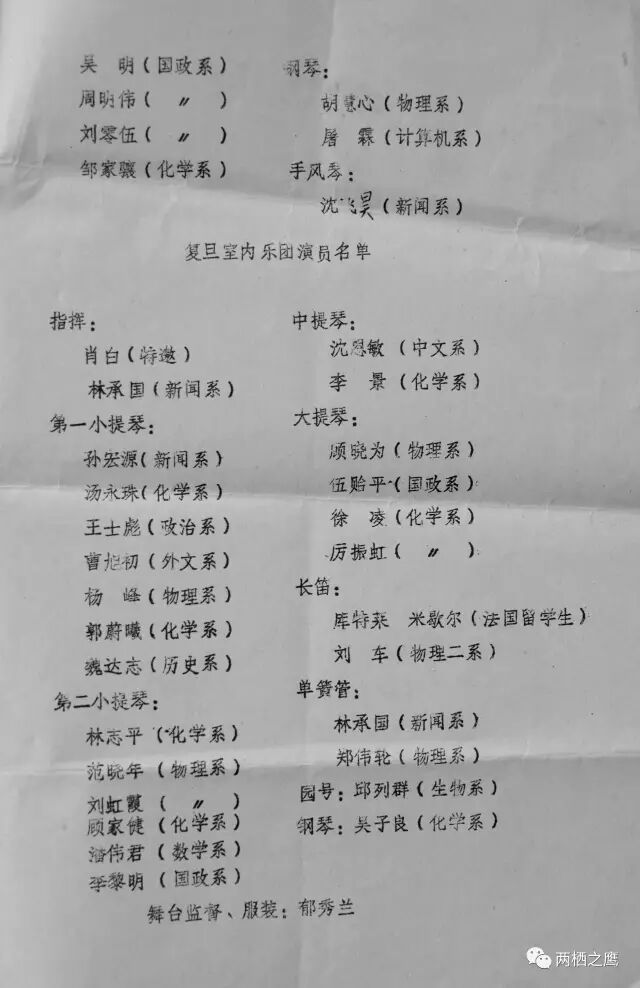 吴 明(国政系)
周明伟( 〃 )
刘零伍( 〃 )
邹家骧(化学系)
钢琴:
胡慧心(物理系)
屠 霖(计算机系)
手风琴:
沈飞昊(新闻系)
复旦室内乐团演员名单
指挥:
肖白(特邀)
林承国(新闻系)
第一小提琴:
孙宏源(新闻系)
汤永珠(化学系)
王士彪(政治系)
曹旭初(外文系)
杨 峰(物理系)
郭蔚曦(化学系)
魏达志(历史系)
第二小提琴:
林志平(化学系)
范晓年(物理系)
刘虹霞( 〃 )
顾家健(化学系)
潘伟君(数学系)
李黎明(国政系)
中提琴:
沈恩敏(中文系)
李 景(化学系)
大提琴:
顾晓为(物理系)
伍贻平(国政系)
徐 凌(化学系)
厉振虹( 〃 )
长笛:
库特莱 米歇尔(法国留学生)
刘 车(物理二系)
单簧管:
林承国(新闻系)
郑伟轮(物理系)
园号:邱列群(生物系)
钢琴:吴子良(化学系)
舞台监督、服装:郁秀兰
两栖之鹰